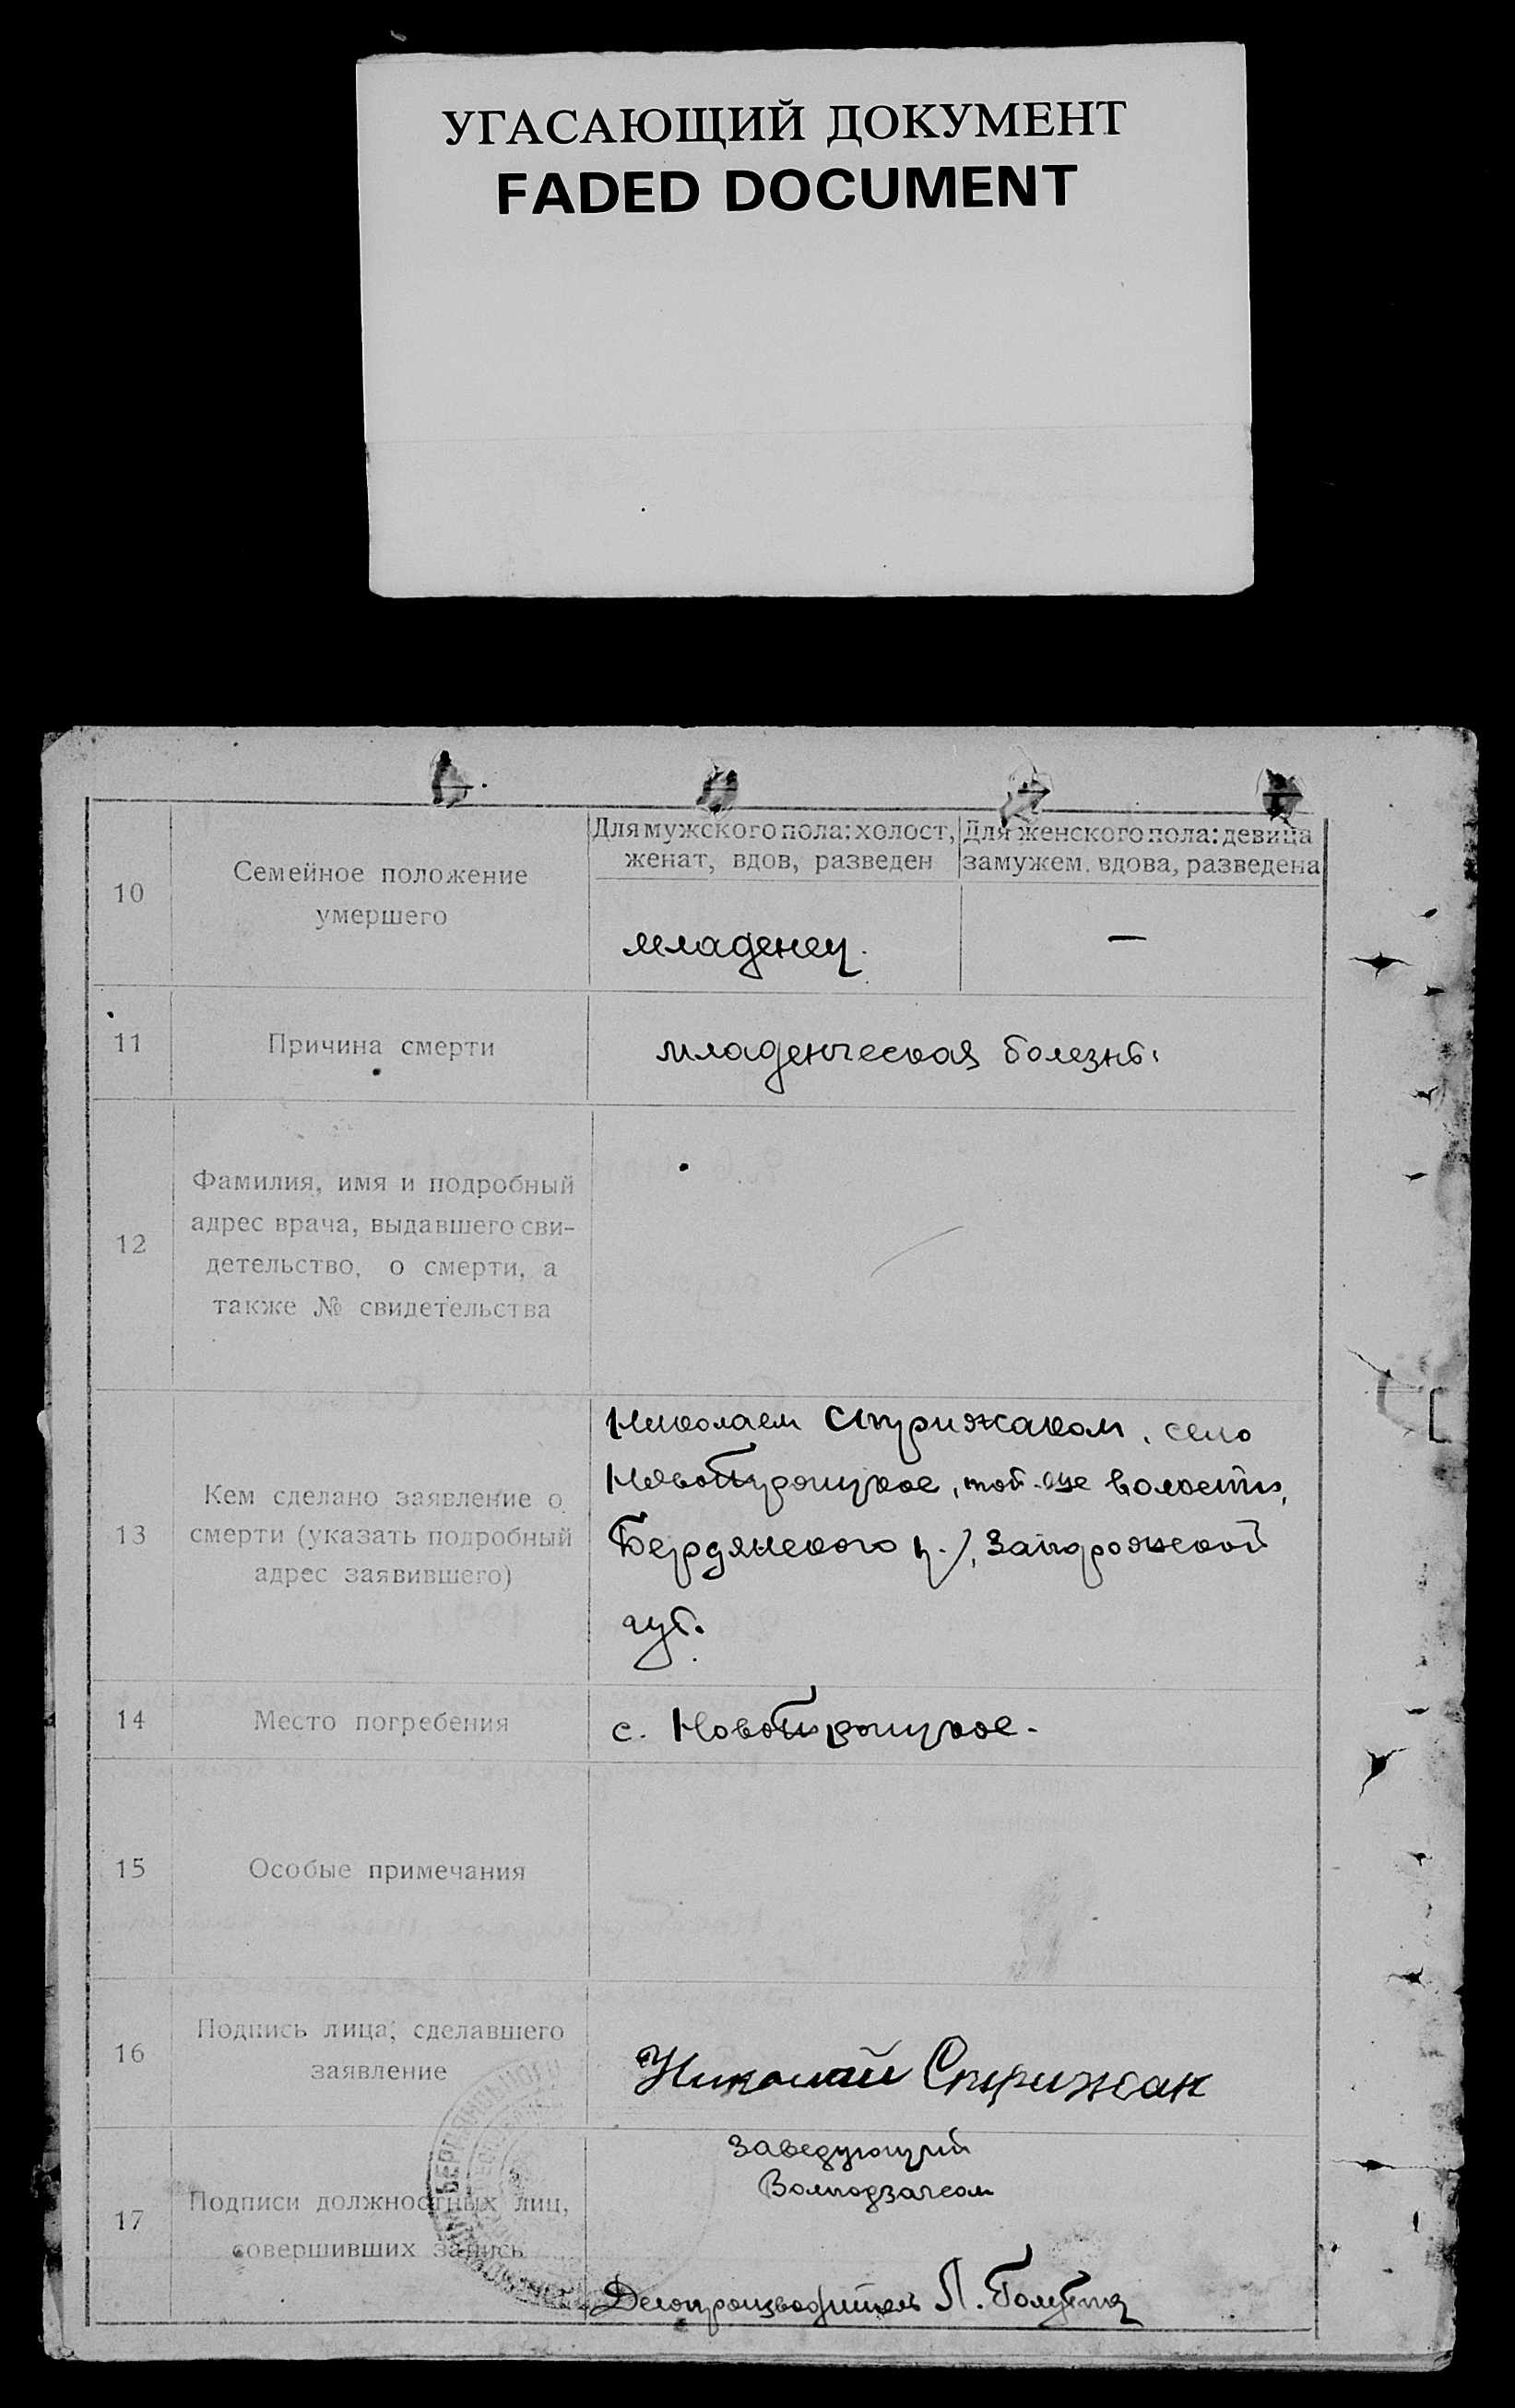 УГАСАЮЩИЙ ДОКУМЕНТ
FADED DOCUMENT
10
Семейное положение
умершего
Для мужского пола: холост,
женат, вдов, разведен
Для женского пола: девица
замужем. вдова, разведена
младенец.
—
11
Причина смерти
младенческая болезнь.
12
Фамилия, имя и подробный
адрес врача, выдавшего сви-
детельство, о смерти, а
также № свидетельства
13
Кем сделано заявление о
смерти (указать подробный
адрес заявившего)
Николаем Стрижаком, село
Новотроицкое, той-же волости,
Бердянского у., Запорожской
губ.
14
Место погребения
с. Новотроицкое.
15
Особые примечания
16
Подпись лица, сделавшего
заявление
Николай Стрижак
17
Подписи должностных лиц,
совершивших запись
Заведующий
Волподзагсом
Делопроизводитель Л.